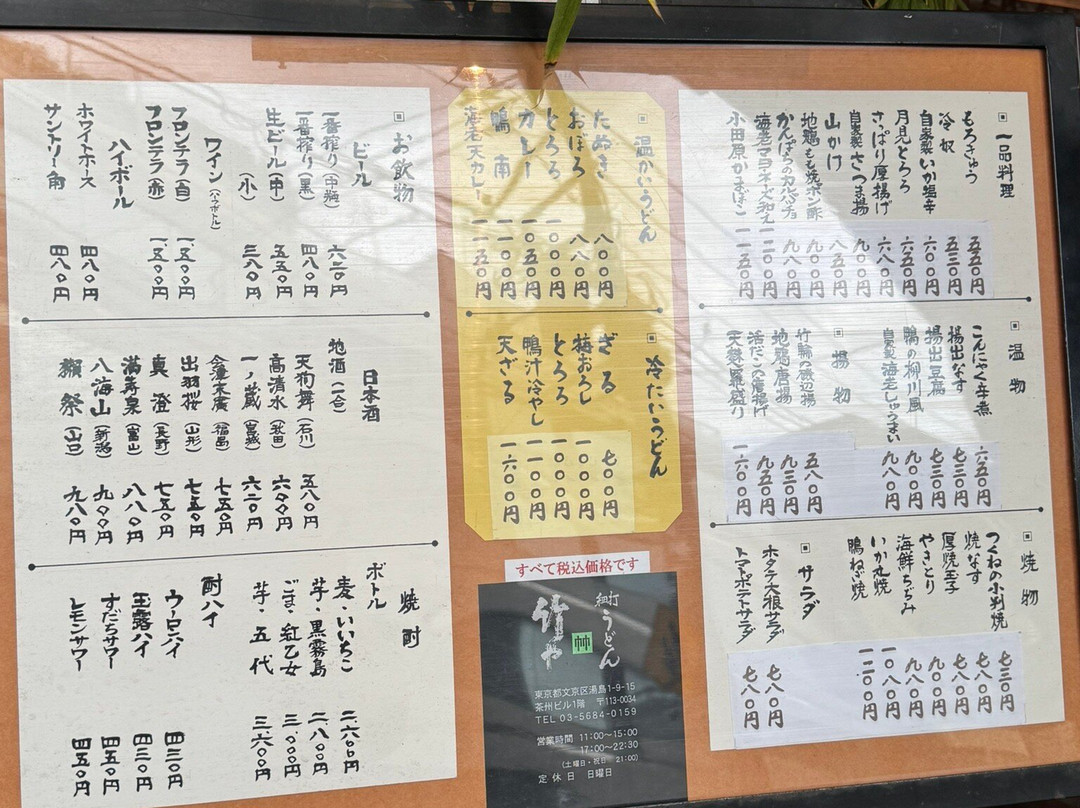 一品料理
もろきゅう 五五〇円
冷奴 五三〇円
自家製いか塩辛 六〇〇円
月見とろろ 六五〇円
さっぱり厚揚げ 六八〇円
自家製さつま揚 九〇〇円
山かけ 八五〇円
地鶏もも焼ポン酢 九〇〇円
かんぱちのカルパッチョ 九八〇円
海老マヨネーズ和え 一二〇〇円
小田原かまぼこ 一一五〇円
温物
こんにゃく辛煮 六五〇円
揚出なす 七三〇円
揚出豆腐 七三〇円
鴨の柳川風 九〇〇円
自家製海老しゅうまい 九八〇円
揚物
竹輪の磯辺揚 五八〇円
地鶏唐揚 九三〇円
活だこの唐揚げ 九五〇円
天麩羅盛り 一六〇〇円
焼物
つくねの小判焼 七三〇円
焼なす 七八〇円
厚焼玉子 七八〇円
やきとり 九〇〇円
海鮮ちぢみ 九八〇円
いか丸焼 一〇八〇円
鴨ねぎ焼 一二〇〇円
サラダ
ホタテ大根サラダ 七八〇円
トマポテトサラダ 七八〇円
温かいうどん
たぬき 八〇〇円
おぼろ 八八〇円
とろろ 一〇〇〇円
カレー 一〇五〇円
鴨南 一一〇〇円
海老天カレー 一一五〇円
冷たいうどん
ざる 七〇〇円
梅おろし 一〇〇〇円
とろろ 一〇〇〇円
鴨汁冷やし 一一〇〇円
天ざる 一六〇〇円
すべて税込価格です
細打うどん
竹や
東京都文京区湯島1-9-15
茶州ビル1階 〒113-0034
TEL 03-5684-0159
営業時間 11:00〜15:00
17:00〜22:30
(土曜日・祝日 21:00)
定休日 日曜日
お飲物
ビール
一番搾り(中瓶) 六二〇円
一番搾り(黒) 四八〇円
生ビール(中) 五五〇円
(小) 三八〇円
ワイン(ハーフボトル)
フロンテラ(白) 一、五〇〇円
フロンテラ(赤) 一、五〇〇円
ハイボール
ホワイトホース 四八〇円
サントリー角 四八〇円
日本酒
地酒(一合)
天狗舞(石川) 五八〇円
高清水(秋田) 六〇〇円
一ノ蔵(宮城) 六二〇円
会津末廣(福島) 七五〇円
出羽桜(山形) 七五〇円
真澄(長野) 七五〇円
満寿泉(富山) 八八〇円
八海山(新潟) 九〇〇円
獺祭(山口) 九八〇円
焼酎
ボトル
麦・いいちこ 二、六〇〇円
芋・黒霧島 二、八〇〇円
ごま・紅乙女 三、〇〇〇円
芋・五代 三、六〇〇円
酎ハイ
ウーロンハイ 四三〇円
玉露ハイ 四三〇円
すだちサワー 四五〇円
レモンサワー 四五〇円